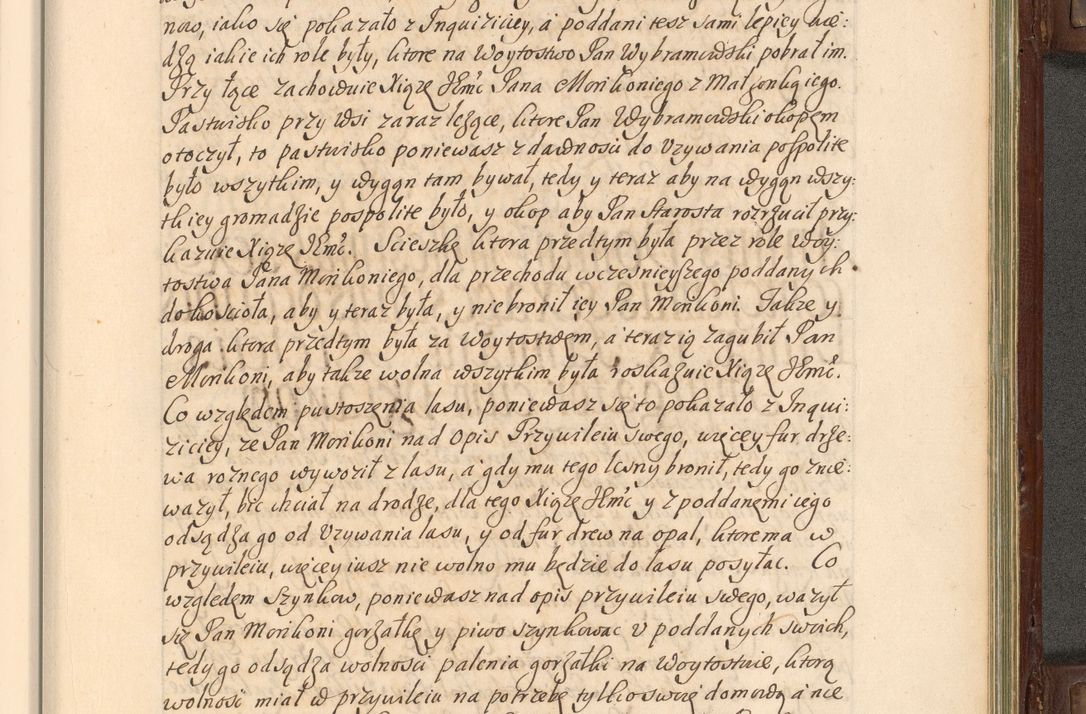 now, iako się pokazało z Inquiziciey, a poddani tesz sami lepiey wie:
dżą iakie ich role były, ktore na Woytostwo Pan Wybramowski pobrał im.
Przy łące zachowuie Xiąże JEmć Pana Morikoniego z Małżonką iego.
Pastwisko przy Wsi zaraz leżące, ktore Pan Wybramowski okopem
otoczył, to pastwisko poniewasz z dawnosci do Vzywania pospolite
było wszytkim, y wygon tam bywał, tedy y teraz aby na wygon wszy:
tkiey gromadzie pospolite było, y okop aby Pan Starosta rozrzucił przy:
kazuie Xiąże JEmć. Scieszkę ktora przedtym była przez role Woy:
tostwa Pana Morikoniego, dla przechodu wczesnieyszego poddanych
do kościoła, aby y teraz była, y nie bronił iey Pan Morikoni. Także y
droga ktora przedtym była za Woytostwem, a teraz ią zagubił Pan
Morikoni, aby także wolna wszytkim była roskazuie Xiąże JEmć.
Co względem pustoszenia lasu, poniewasz się to pokazało z Inqui:
ziciey, ze Pan Morikoni nad opis Przywileiu swego, więcey fur drze:
wa roznego wywoził z lasu, a gdy mu tego lesny bronił, tedy go znie:
ważył, bić chciał na drodze, dla tego Xiąże JEmć y z poddanemi iego
odsądza go od Vzywania lasu, y od fur drew na opal, ktore ma w
przywileiu, więcey iusz nie wolno mu będzie do lasu posyłac. Co
względem Szynkow, poniewasz nad opis przywileiu swego, ważył
się Pan Morikoni gorzałkę y piwo szynkowac v poddanych swoich,
tedy go odsądza wolnosci palenia gorzałki na Woytostwie, ktorą
wolność miał w przywileiu na potrzebę tylko swoię domową a nie